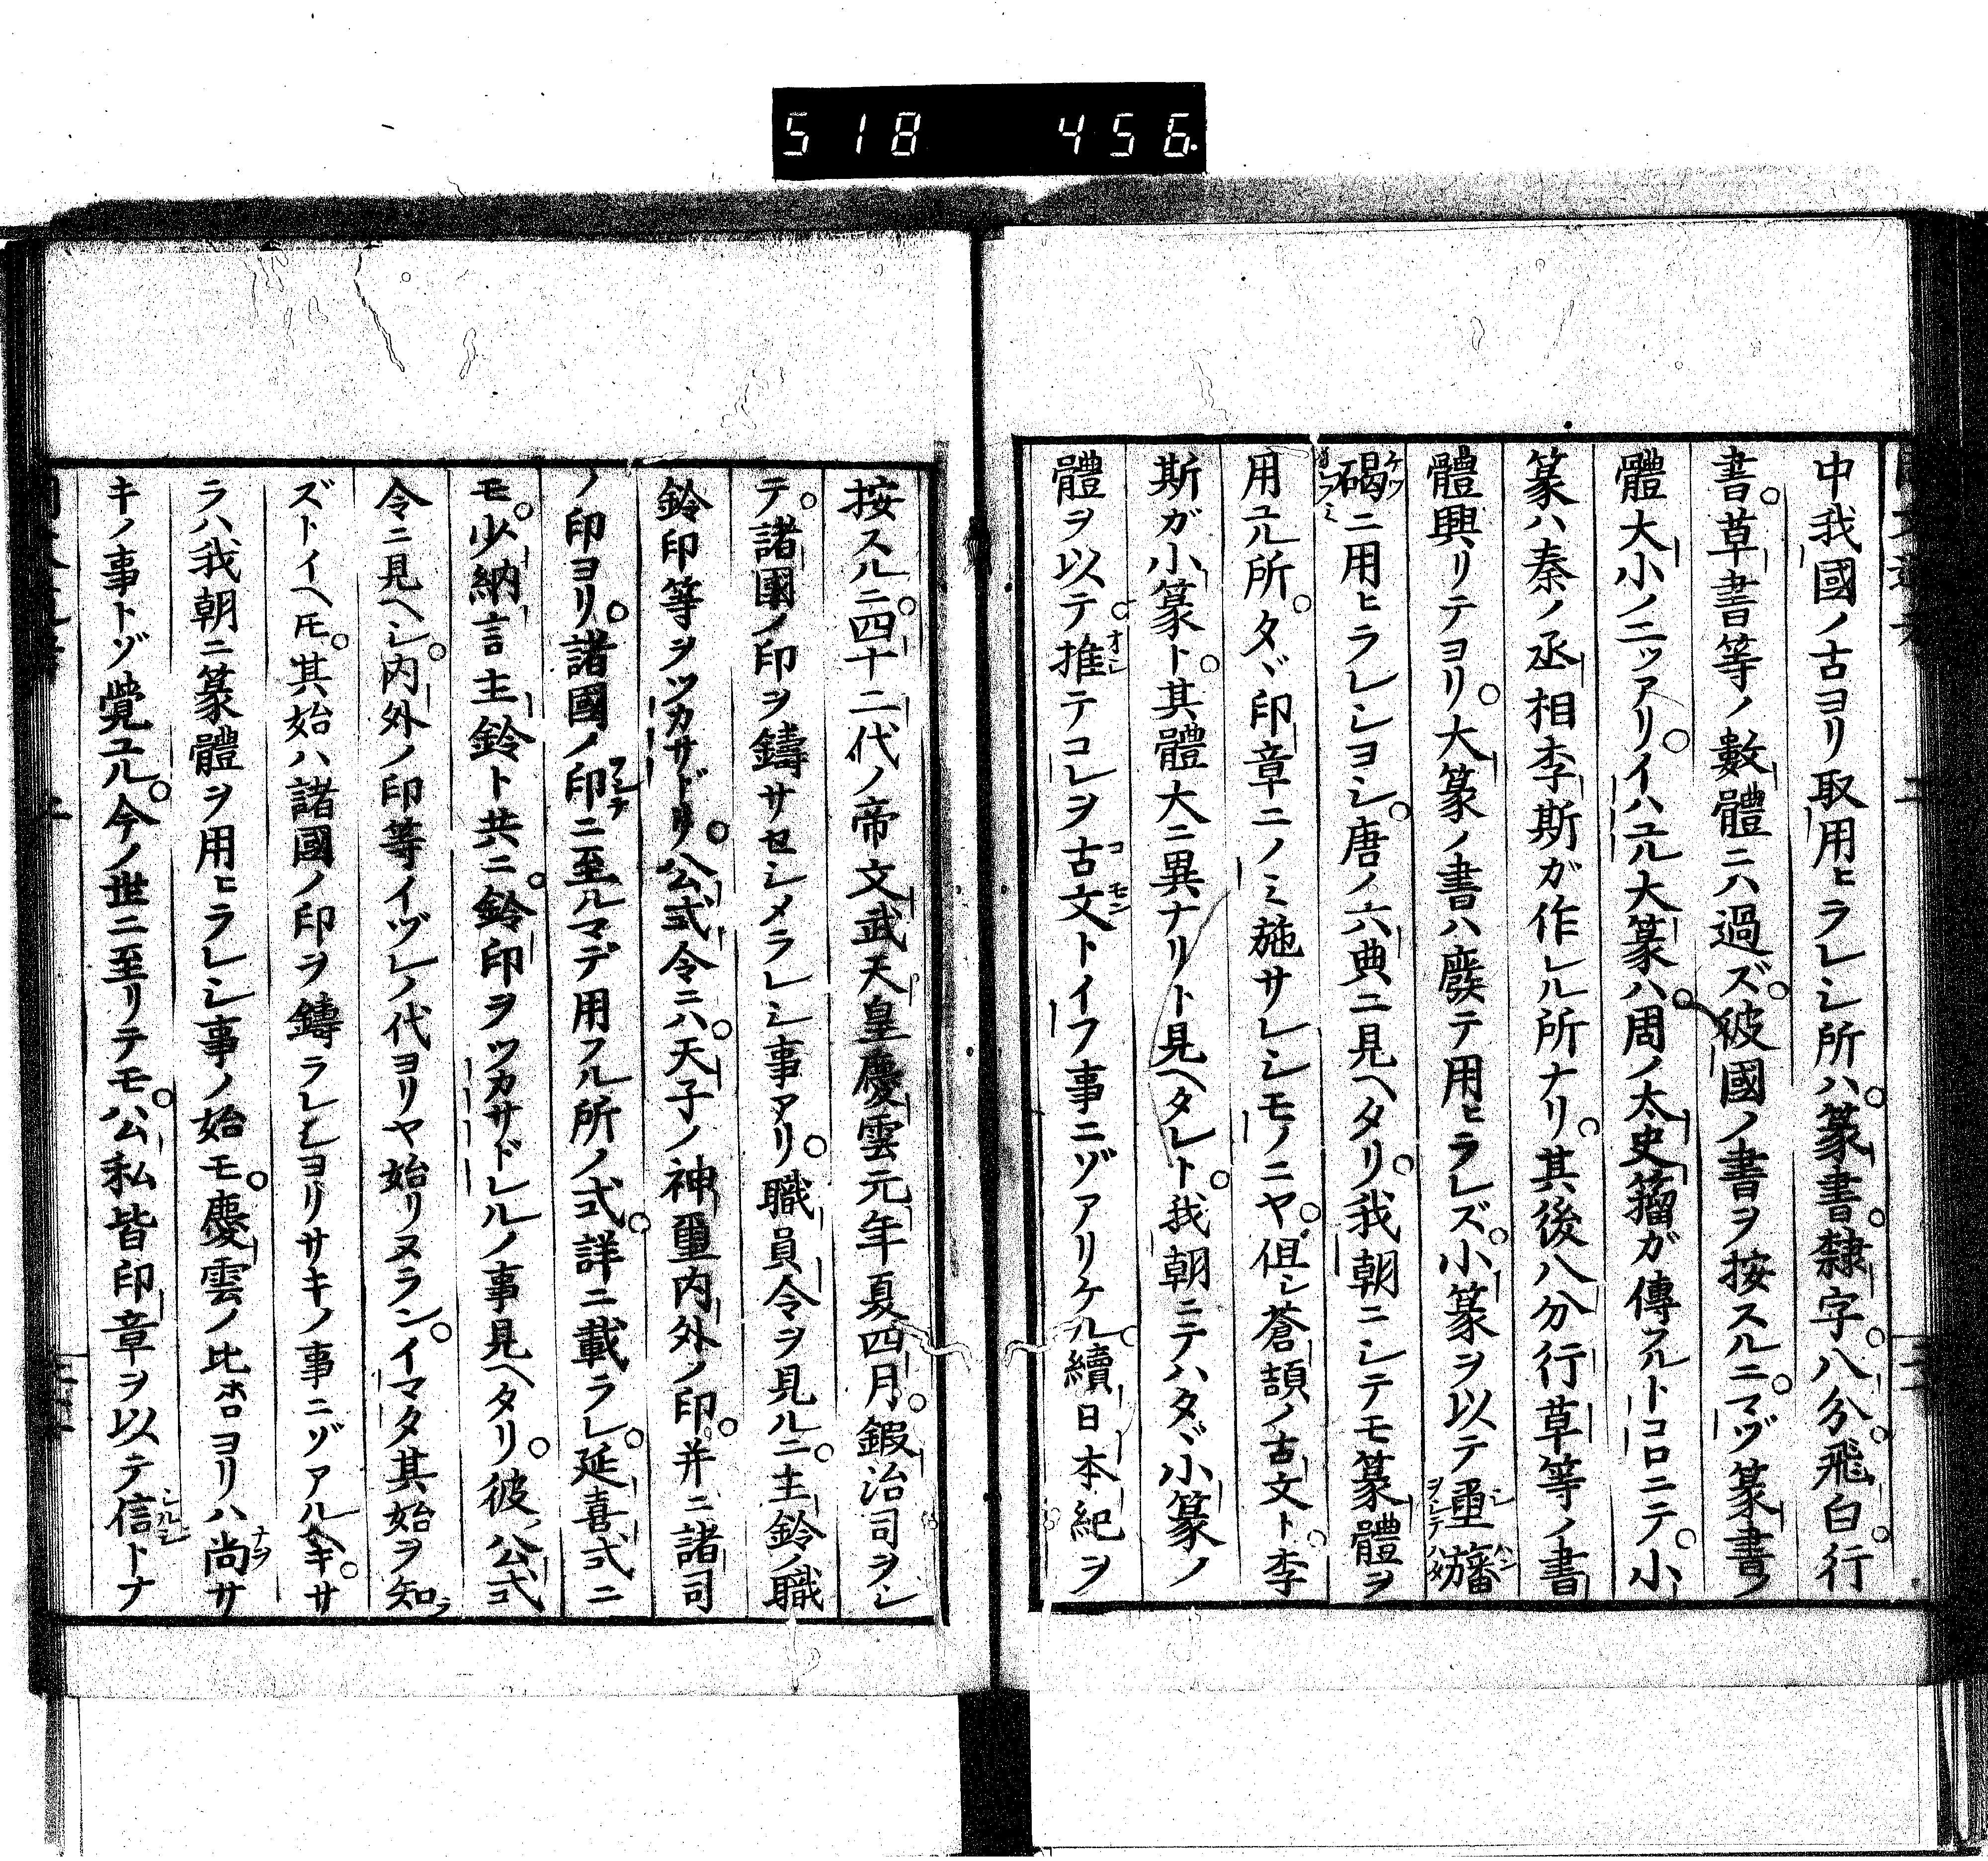 518 456
中我國ノ古ヨリ取用ヒラレシ所ハ。篆書。隷字。八分。飛白。行
書。草書等ノ數體ニハ過ズ。彼國ノ書ヲ按スルニ。マヅ篆書ノ
體大小ノ二ツアリ。イハユル大篆ハ。周ノ太史籀ガ傳フルトコロニテ。小
篆ハ秦ノ丞相李斯ガ作レル所ナリ。其後八分行草等ノ書
體興リテヨリ。大篆ノ書ハ廢テ用ヒラレズ。小篆ヲ以テ璽旛
碣ニ用ヒラレシヨシ。唐ノ六典ニ見ヘタリ。我朝ニシテモ篆體ヲ
用ユル所。タヾ印章ニノミ施サレシモノニヤ。但シ蒼頡ノ古文ト。李
斯ガ小篆ト。其體大ニ異ナリト見ヘタレト。我朝ニテハタヾ小篆ノ
體ヲ以テ。推テコレヲ古文トイフ事ニゾアリケル。續日本紀ヲ
按スルニ。四十二代ノ帝文武天皇慶雲元年夏四月。鍜冶司ヲシ
テ。諸國ノ印ヲ鑄サセシメラレシ事アリ。職員令ヲ見ルニ。主鈴ノ職
鈴印等ヲツカサドリ。公式令ニハ。天子ノ神璽内外ノ印。并ニ諸司
ノ印ヨリ。諸國ノ印ニ至ルマデ用フル所ノ式。詳ニ載ラレ。延喜式ニ
モ。少納言主鈴ト共ニ。鈴印ヲツカサドレルノ事見ヘタリ。彼公式
令ニ見ヘシ。内外ノ印等イヅレノ代ヨリヤ始リヌラン。イマタ其始ヲ知
ズトイヘ𪜈。其始ハ諸國ノ印ヲ鑄ラレシヨリサキノ事ニゾアルヘキ。サ
ラハ我朝ニ篆體ヲ用ヒラレシ事ノ始モ。慶雲ノ比ホヨリハ尚サ
キノ事トゾ覺ユル。今ノ世ニ至リテモ。公私皆印章ヲ以テ信トナ